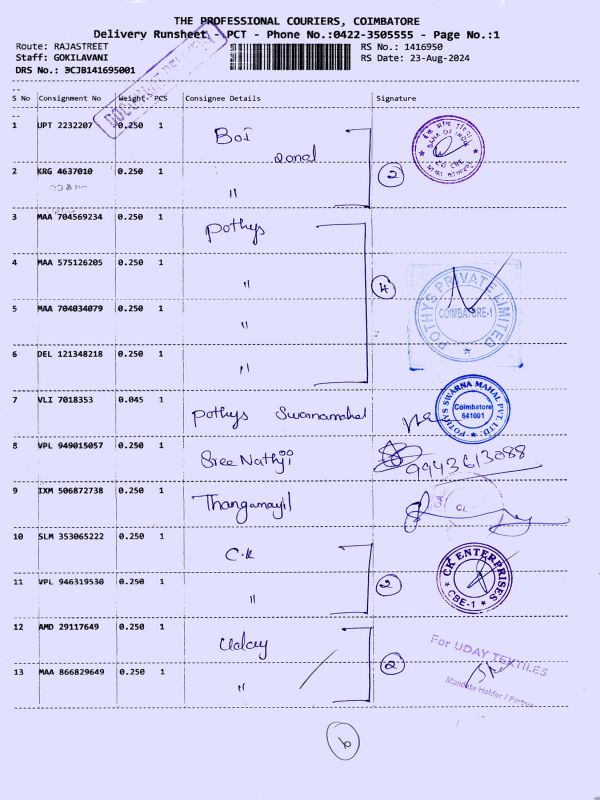 THE PROFESSIONAL COURIERS, COIMBATORE
Delivery Runsheet - PCT - Phone No.:0422-3505555 - Page No.:1
Route: RAJASTREET
Staff: GOKILAVANI
DRS No.: 3CJB141695001
RS No.: 1416950
RS Date: 23-Aug-2024
S No Consignment No Weight PCS Consignee Details Signature
1 UPT 2232207 0.250 1 BoI
zonal
BANK OF INDIA
2 KRG 4637010 0.250 1 "
2
3 MAA 704569234 0.250 1 pothys
4 MAA 575126205 0.250 1 "
4
POTHYS PRIVATE LIMITED
COIMBATORE-1
5 MAA 704034079 0.250 1 "
6 DEL 121348218 0.250 1 "
7 VLI 7018353 0.045 1 pothys Swarnamahal
POTHYS SWARNA MAHAL PVT. LTD.
Coimbatore
641001
8 VPL 949015057 0.250 1 Sree Nathji
9943613088
9 IXM 506872738 0.250 1 Thangamayil
10 SLM 353065222 0.250 1 C.K
11 VPL 946319530 0.250 1 "
2
CK ENTERPRISES
CBE-1
12 AMD 29117649 0.250 1 Uday
2
For UDAY TEXTILES
13 MAA 866829649 0.250 1 "
Mandate Holder / Partner
6